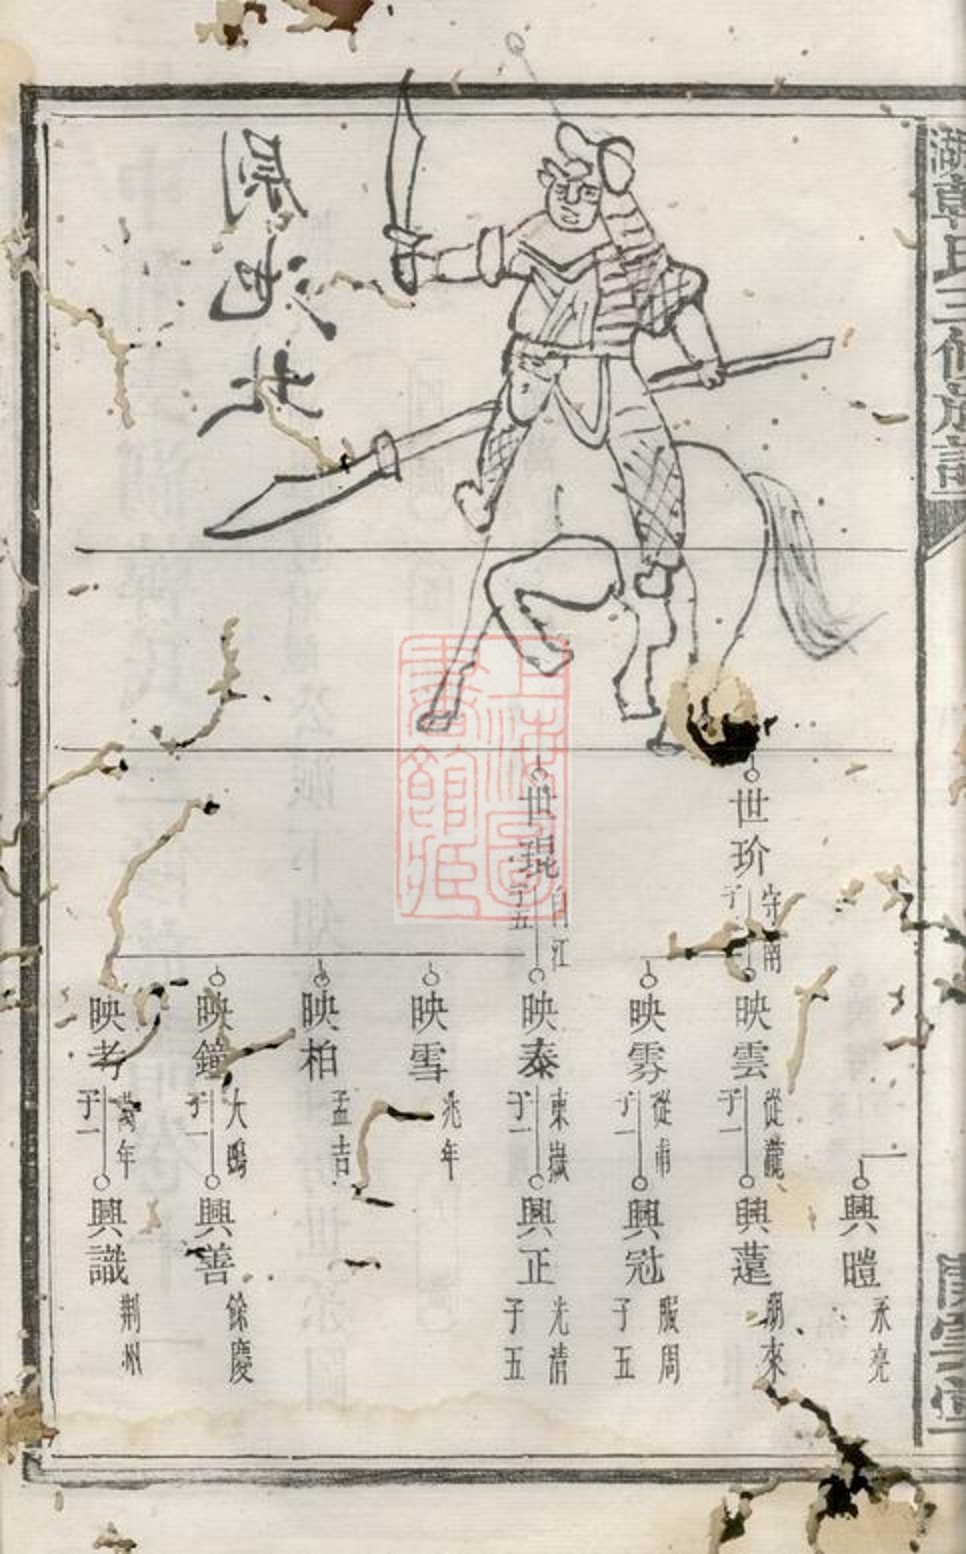 湖韓氏三修族譜
世玠
守南
子
世琨
自江
子五
映雲
從龍
子一
映雰
從甫
子一
映泰
東嶽
子一
映雪
兆年
映柏
孟吉
映鐘
大鵾
子一
映考
萬年
子一
興暟
永亮
興蓮
朋來
興冠
服周
子五
興正
光清
子五
興善
餘慶
興識
荆州
上海圖書館藏